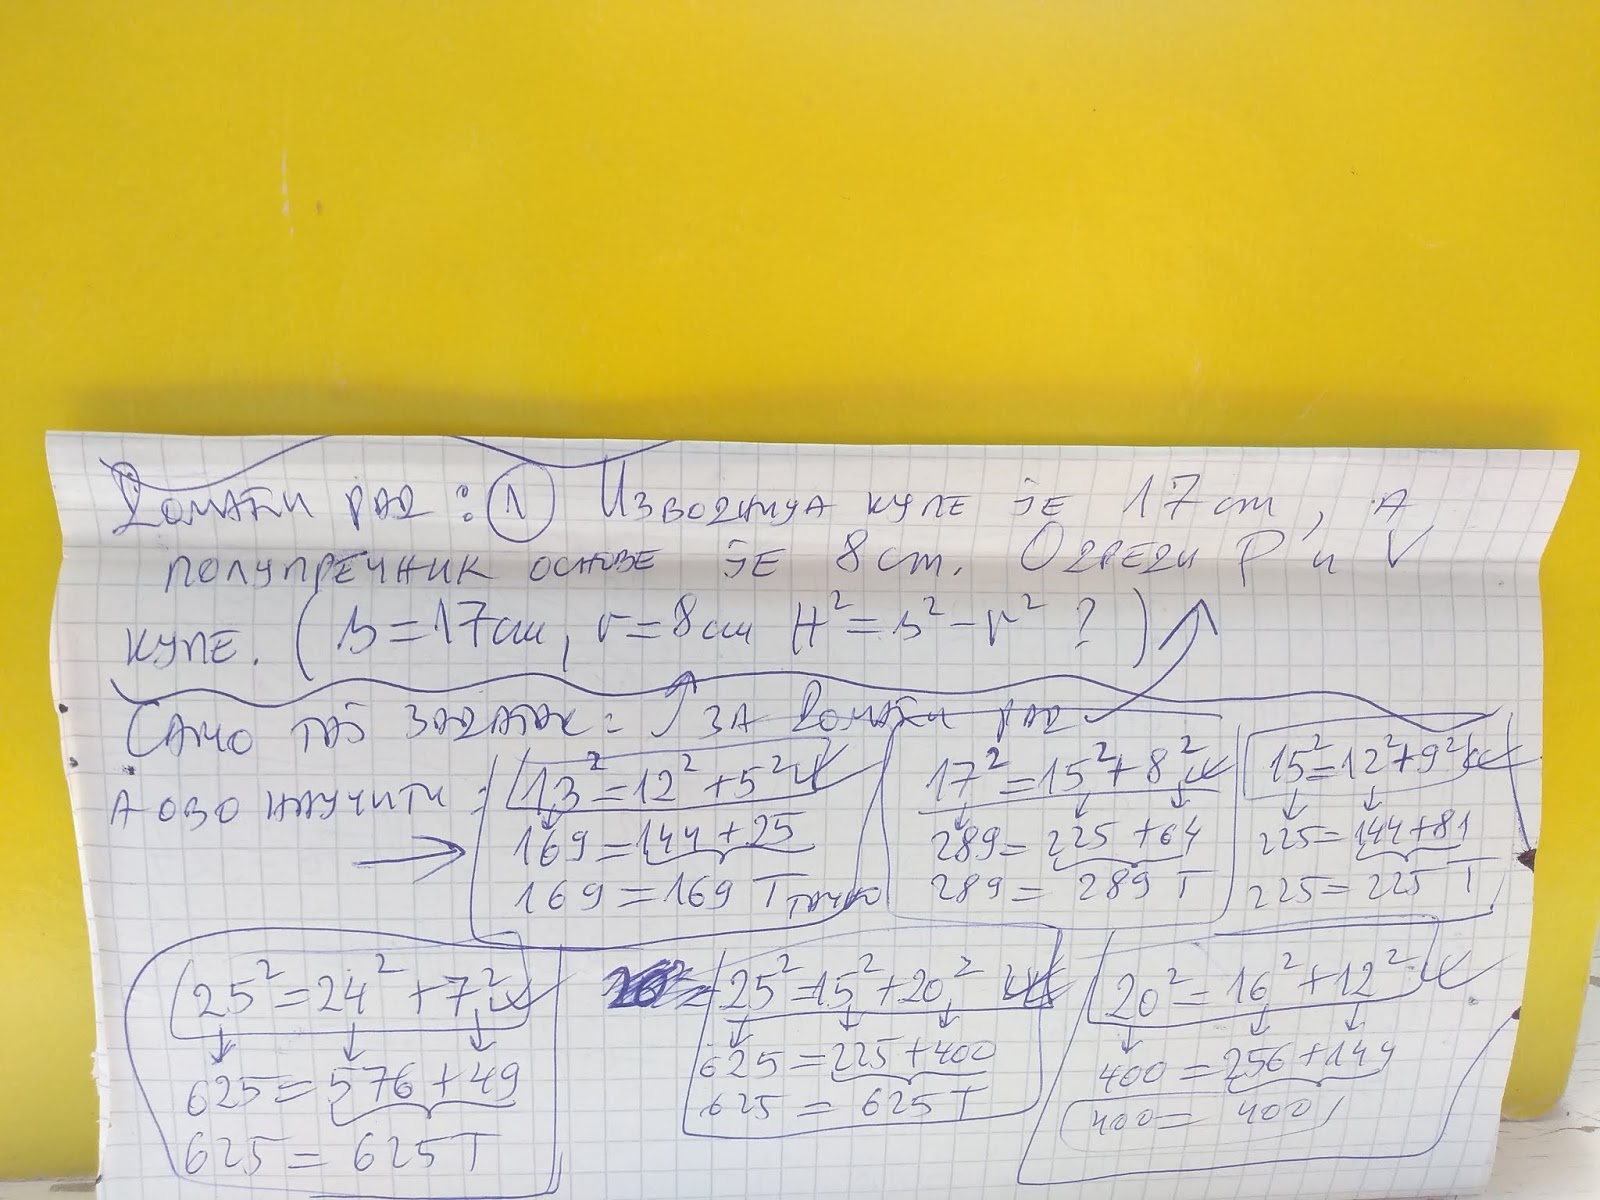 Домаћи рад: 1 Изводница купе је 17 cm, а
полупречник основе је 8 cm. Одреди P и V
купе. (s=17cm, r=8cm H²=s²-r² ?)
Само тај задатак за домаћи рад
А ово научити:
13²=12²+5²
169=144+25
169=169 T тачно
17²=15²+8²
289=225+64
289=289 T
15²=12²+9²
225=144+81
225=225 T
25²=24²+7²
625=576+49
625=625 T
25²=15²+20²
625=225+400
625=625 T
20²=16²+12²
400=256+144
400=400